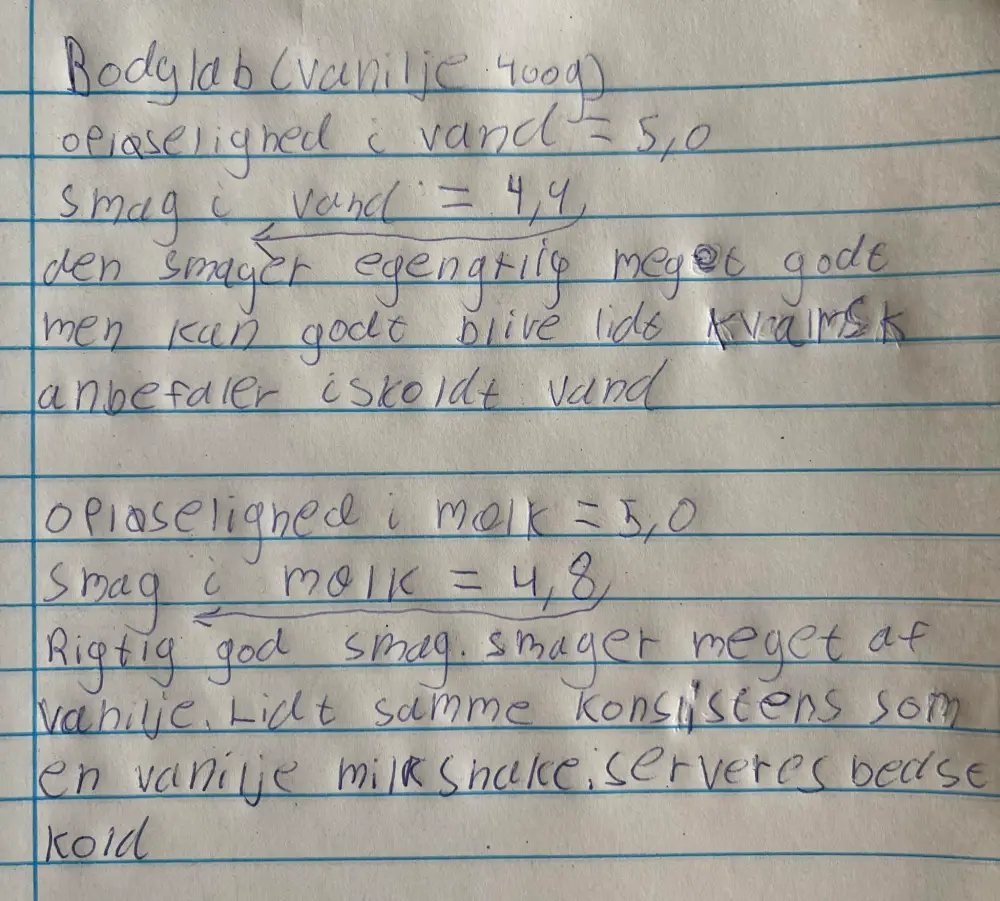 Bodylab (vanilje 400g)
opløselighed i vand = 5,0
smag i vand = 4,4
den smager egengtlig meget godt
men kan godt blive lidt kvalmsk
anbefaler iskoldt vand
opløselighed i mølk = 5,0
smag i mølk = 4,8
Rigtig god smag. smager meget af
vanilje. Lidt samme konsistens som
en vanilje milkshake. serveres bedst
kold